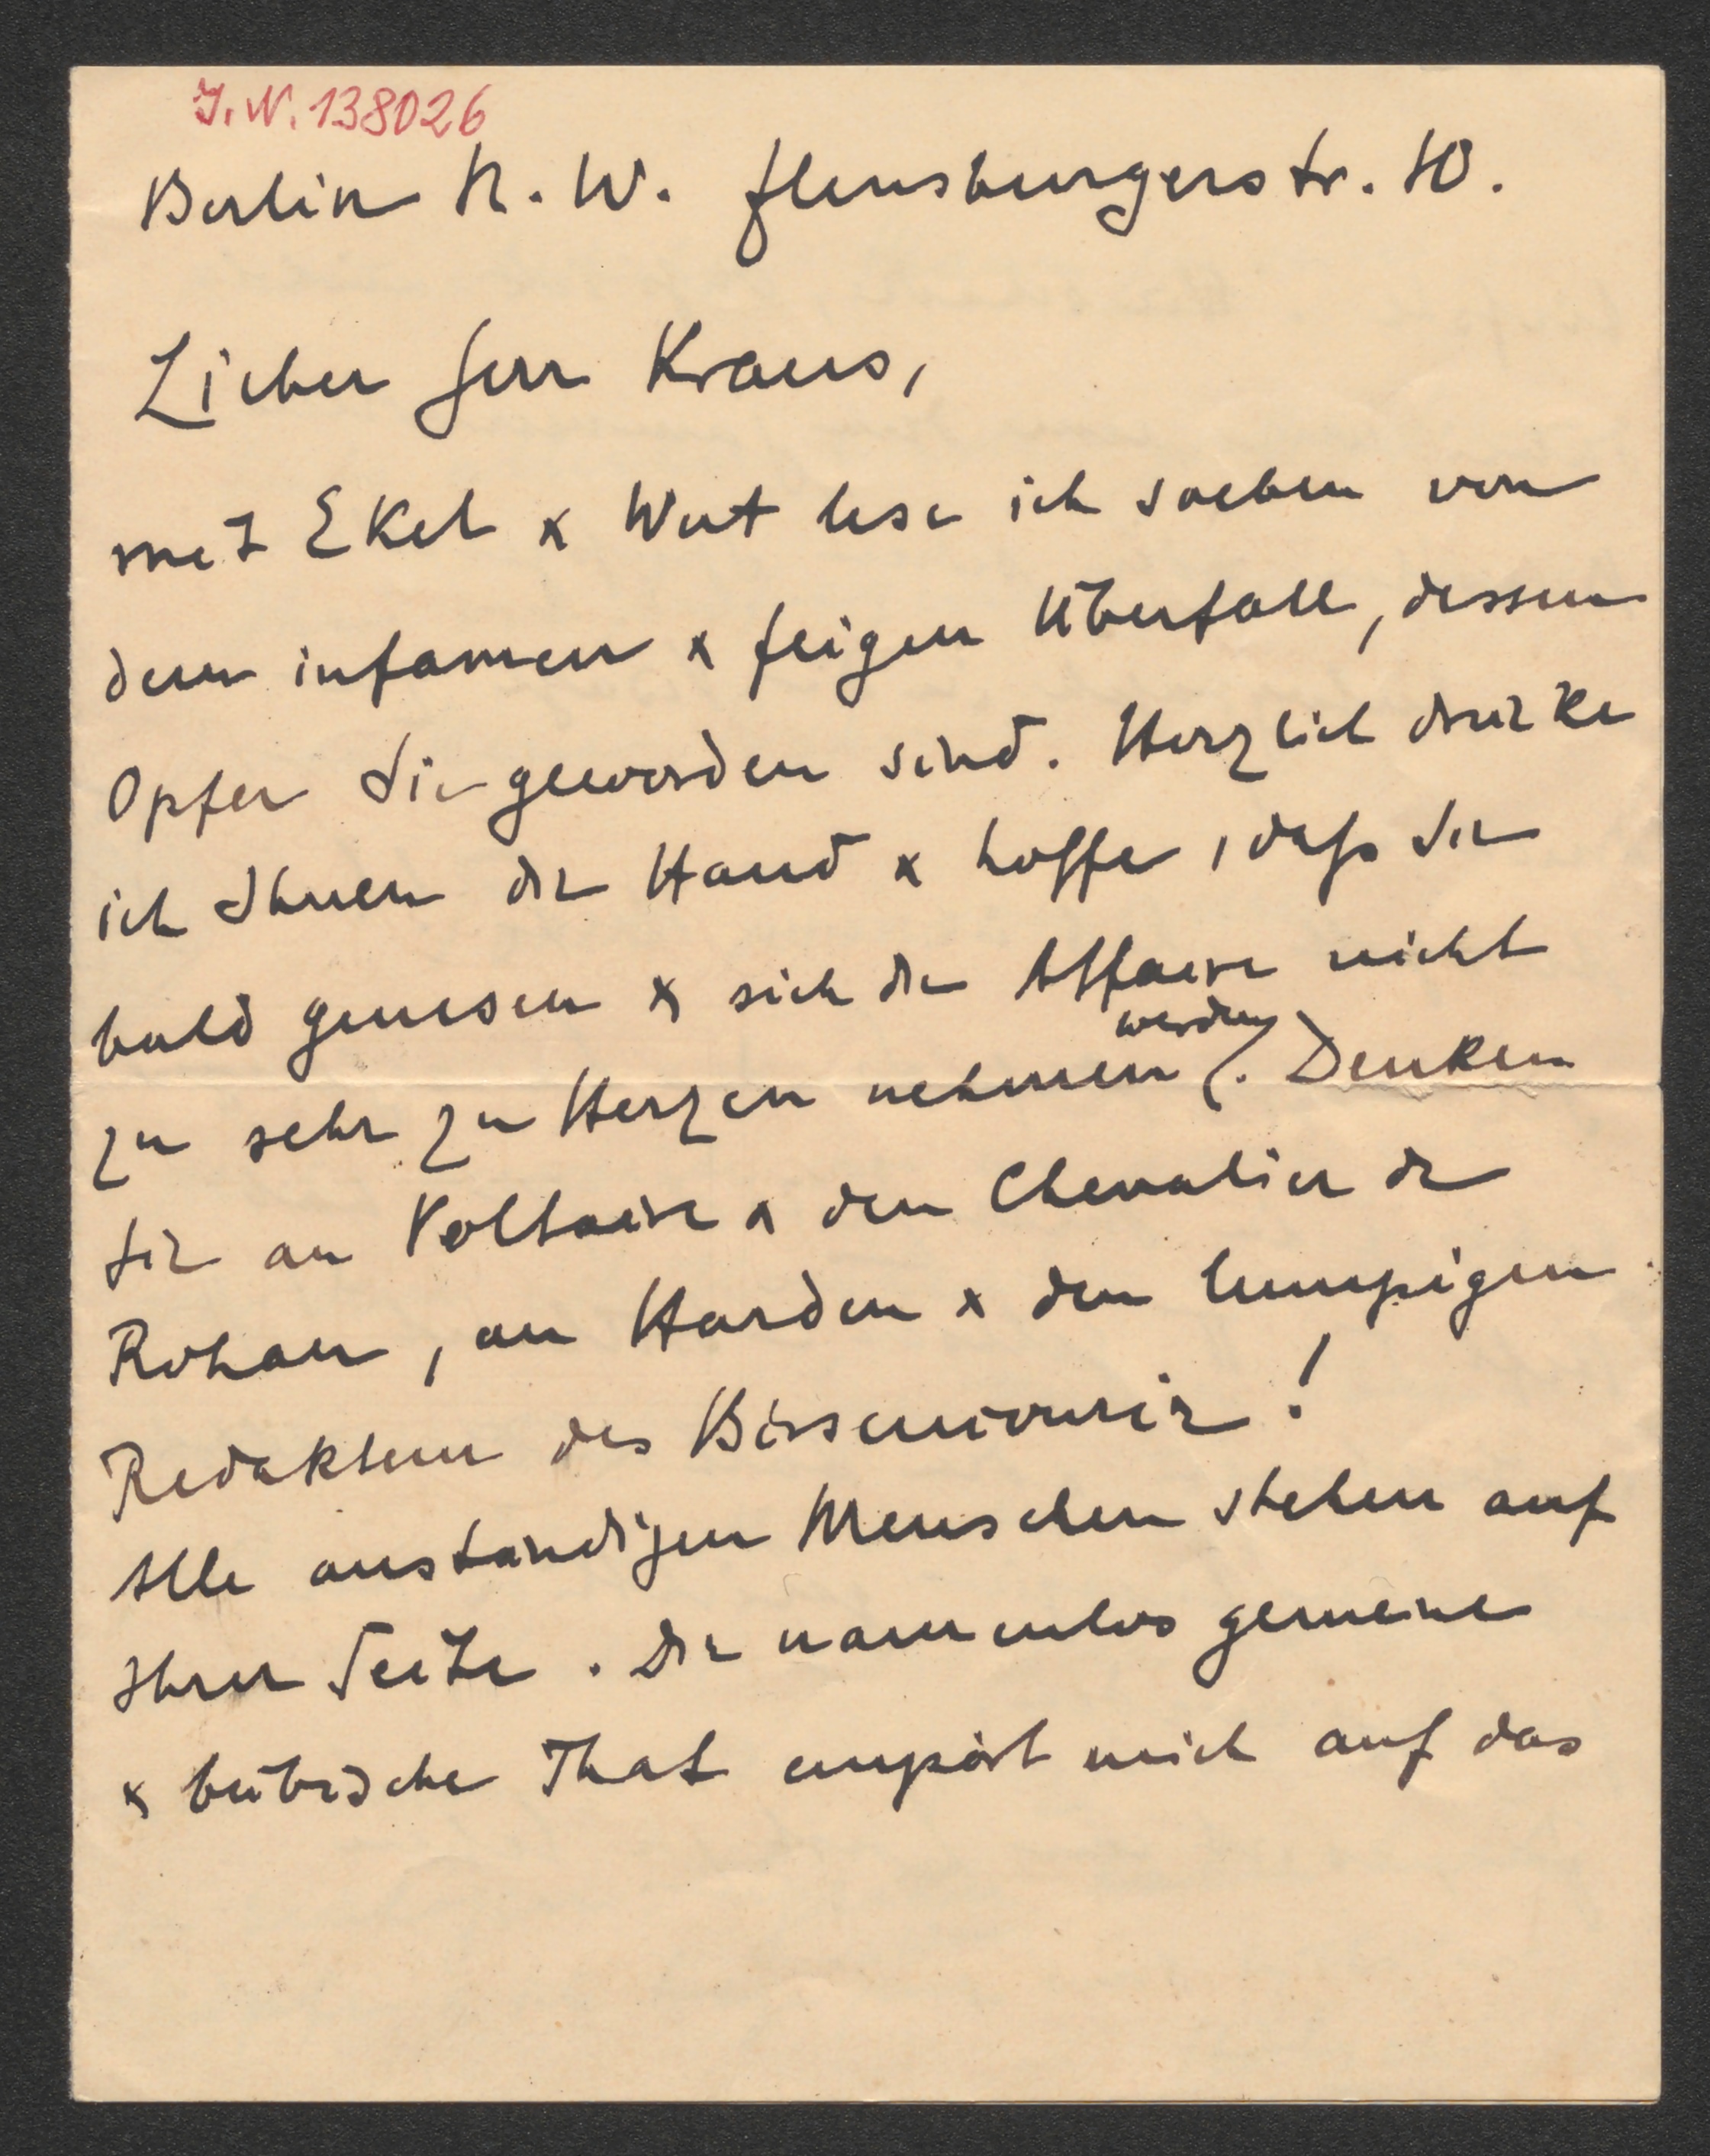 J.N. 138026
Berlin N. W. Flensburgerstr. 10.
Lieber Herr Kraus,
mit Ekel & Wut lese ich soeben von
dem infamen & feigen Überfall, dessen
Opfer Sie geworden sind. Herzlich drücke
ich Ihnen die Hand & hoffe, daß Sie
bald genesen & sich die Affaire nicht
zu sehr zu Herzen nehmen werden. Denken
Sie an Voltaire & den Chevalier de
Rohan, an Harden & den lumpigen
Redakteur des Börsencourir!
Alle anständigen Menschen stehen auf
Ihrer Seite. Die namenlos gemeine
& bübische That empört mich auf das